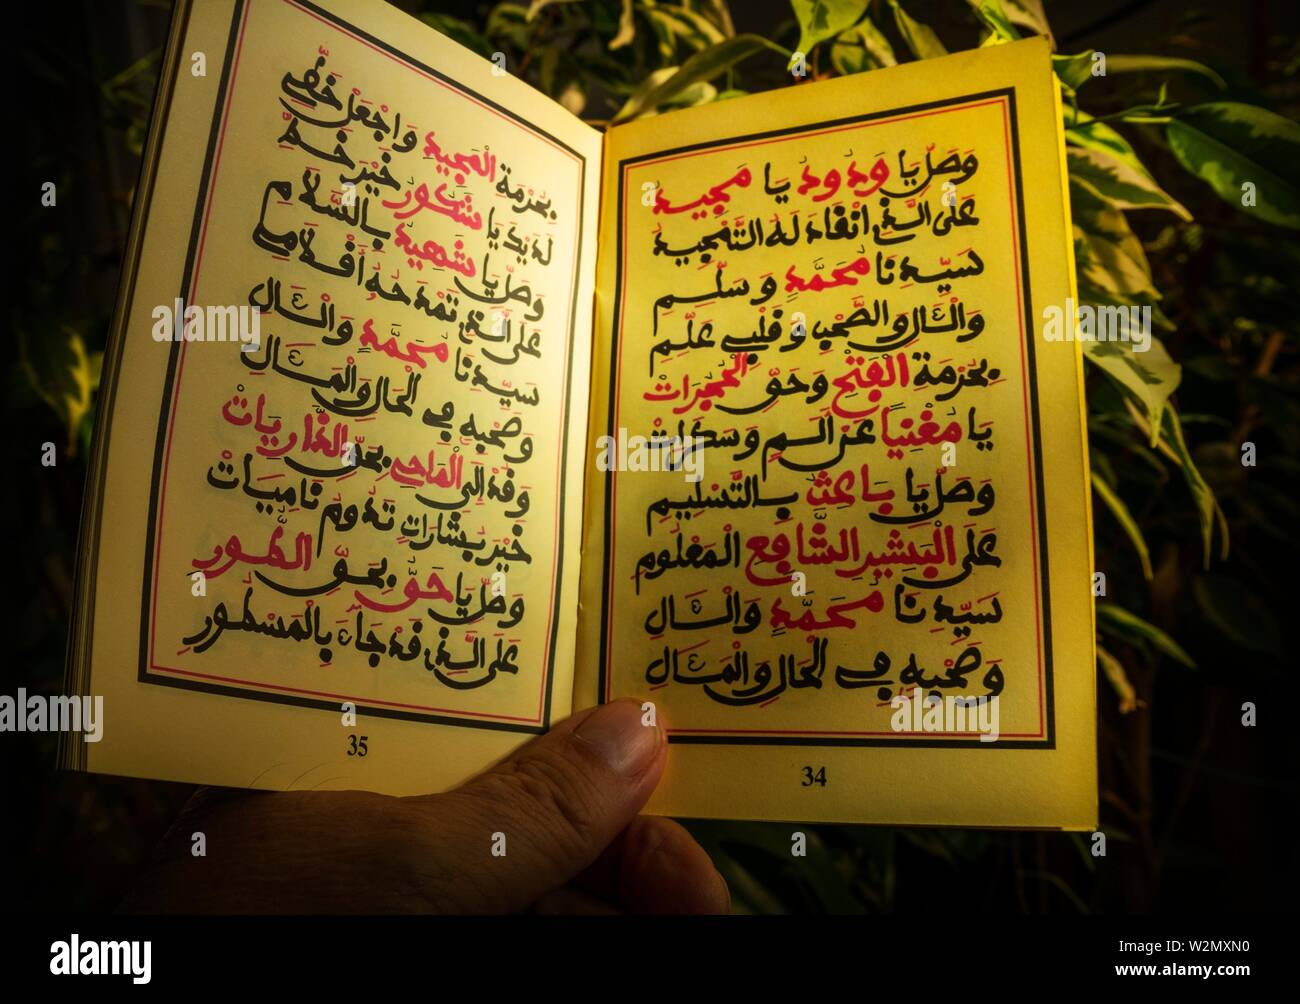 وَصَلِّ يَا وَدُودُ يَا مَجِيدُ
عَلَى الَّذِي انْقَادَ لَهُ التَّمْجِيدُ
سَيِّدِنَا مُحَمَّدٍ وَسَلِّمِ
وَالْآلِ وَالصَّحْبِ وَقَلْبِي عَلِّمِ
بِحُرْمَةِ الْفَتْحِ وَحَقِّ الْحُجُرَاتْ
يَا مُغْنِيًا عَنْ أَلَمٍ وَسَكَرَاتْ
وَصَلِّ يَا بَاعِثُ بِالتَّسْلِيمِ
عَلَى الْبَشِيرِ الشَّافِعِ الْمَعْلُومِ
سَيِّدِنَا مُحَمَّدٍ وَالْآلِ
وَصَحْبِهِ فِي الْحَالِ وَالْمَآلِ
34
بِحُرْمَةِ الْمَجِيدِ وَاجْعَلْ خَطِّي
لَدَيْكَ يَا شَكُورُ خَيْرَ خَطِّ
وَصَلِّ يَا شَهِيدُ بِالسَّلَامِ
عَلَى الَّذِي تَمْدَحُهُ أَقْلَامِي
سَيِّدِنَا مُحَمَّدٍ وَالْآلِ
وَصَحْبِهِ فِي الْحَالِ وَالْمَآلِ
وَقُدْ إِلَى الْمَاحِي بِحَقِّ الذَّارِيَاتْ
خَيْرَ بِشَارَاتٍ تَدُومُ نَامِيَاتْ
وَصَلِّ يَا حَقُّ بِحَقِّ الطُّورِ
عَلَى الَّذِي قَدْ جَاءَ بِالْمَسْطُورِ
35
alamy
Image ID: W2MXN0
www.alamy.com